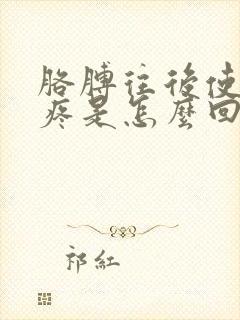 胳膊往後使
疼是怎麼回
祁紅